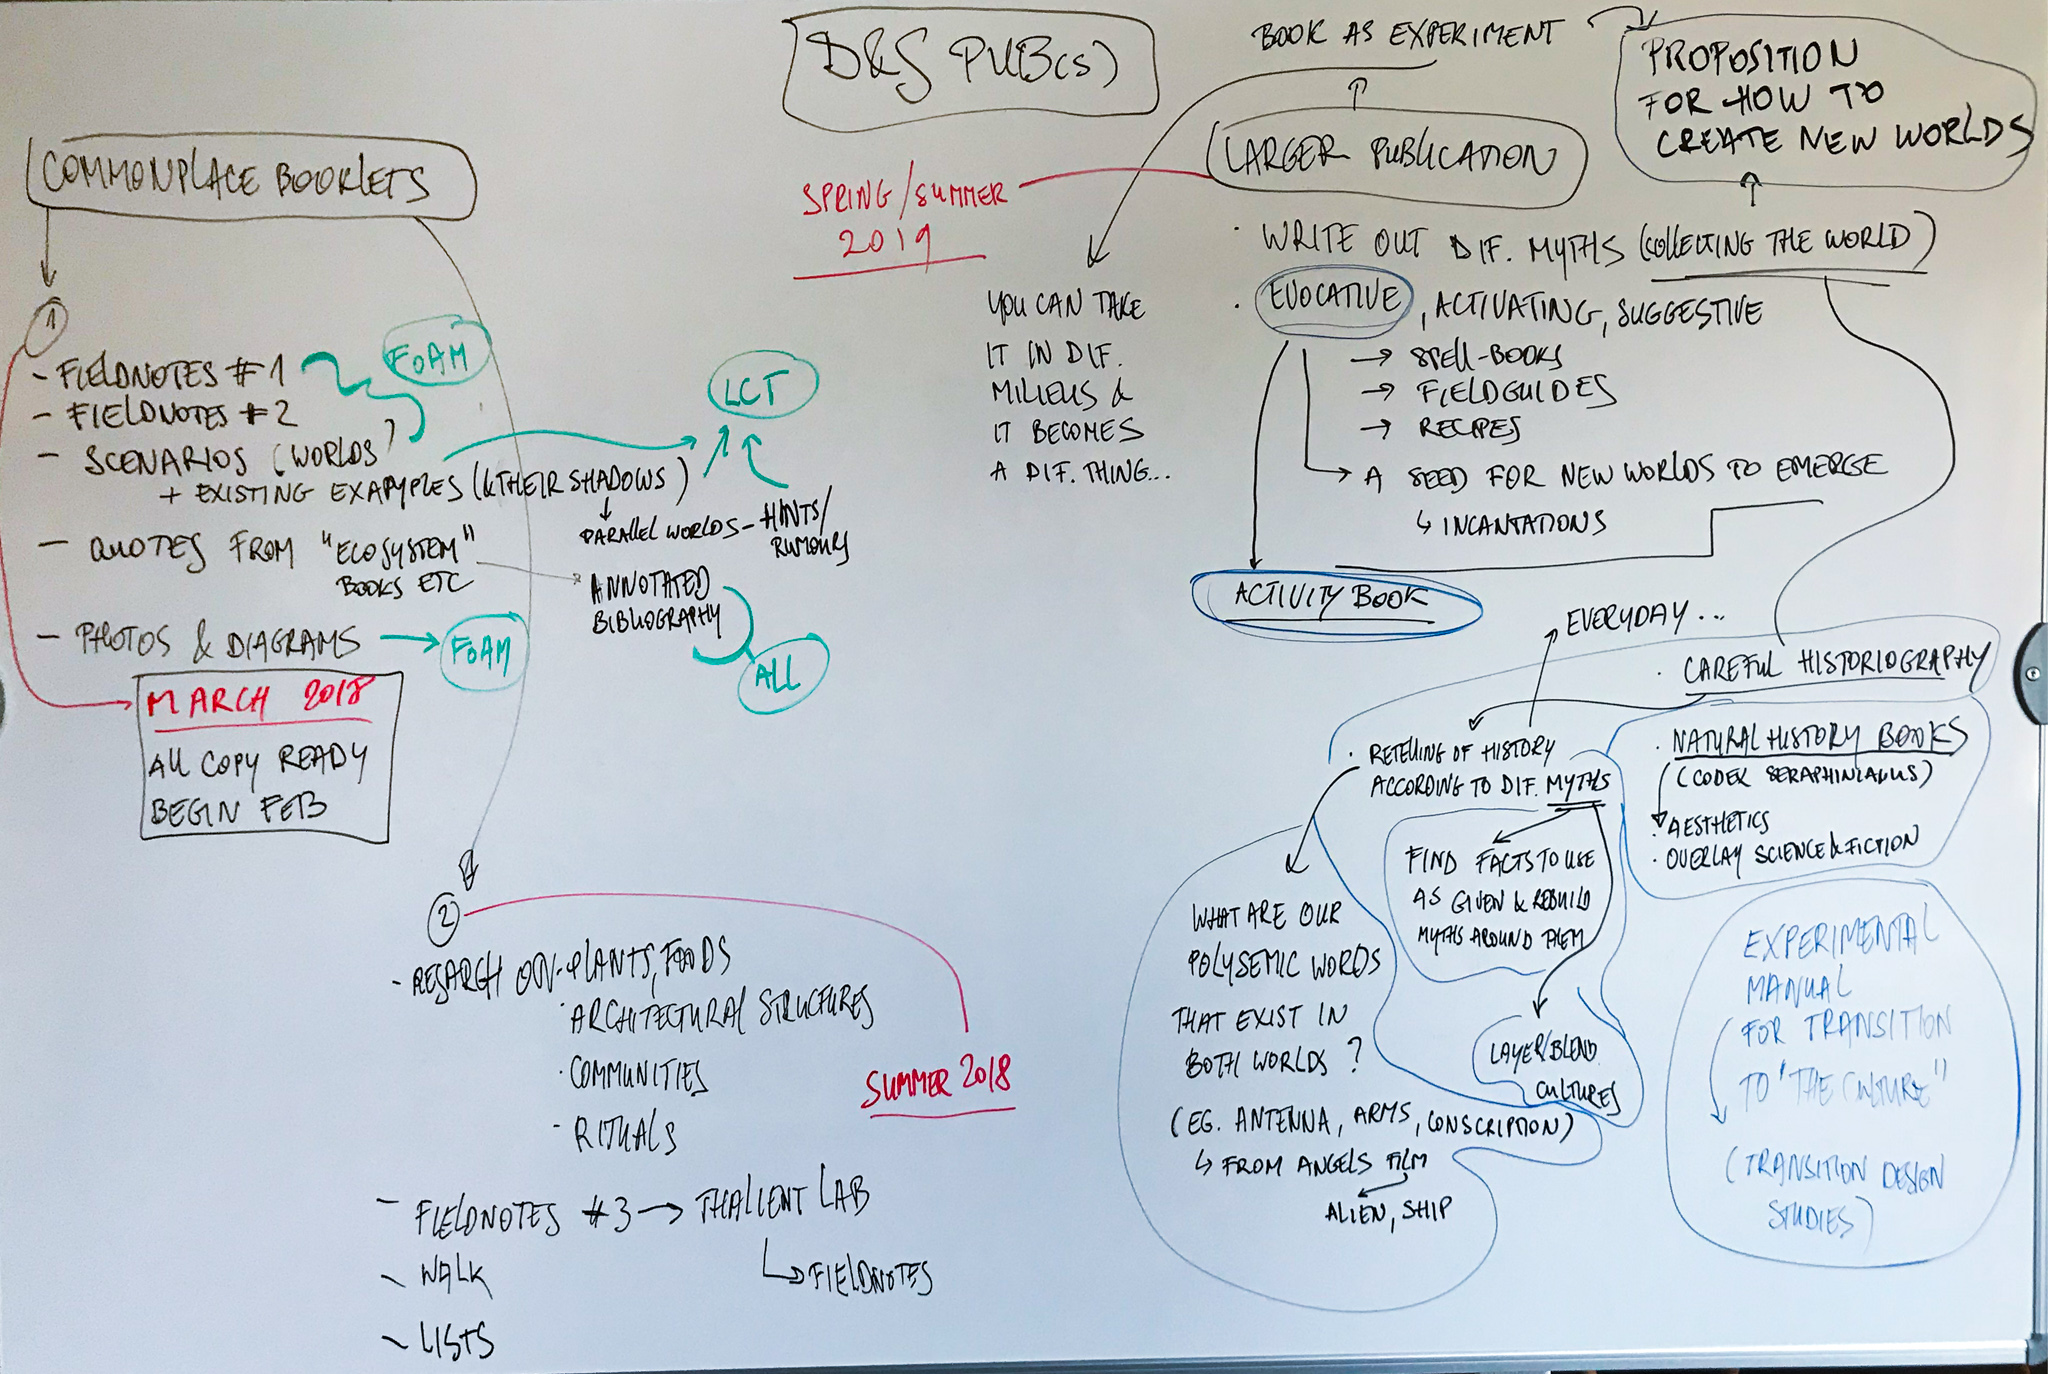 D&S PUB(S)
COMMONPLACE BOOKLETS
1
- FIELDNOTES #1
FoAM
- FIELDNOTES #2
- SCENARIOS (WORLDS)
+ EXISTING EXAMPLES (& THEIR SHADOWS)
LCT
PARALLEL WORLDS - HINTS/
RUMOURS
- QUOTES FROM "ECOSYSTEM"
BOOKS ETC
ANNOTATED
BIBLIOGRAPHY
ALL
- PHOTOS & DIAGRAMS
FoAM
MARCH 2018
ALL COPY READY
BEGIN FEB
2
- RESARCH ON - PLANTS, FOODS
· ARCHITECTURAL STRUCTURES
· COMMUNITIES
· RITUALS
SUMMER 2018
- FIELDNOTES #3 → THALIENT LAB
FIELDNOTES
- WALK
- LISTS
BOOK AS EXPERIMENT
PROPOSITION
FOR HOW TO
CREATE NEW WORLDS
LARGER PUBLICATION
SPRING/SUMMER
2019
YOU CAN TAKE
IT IN DIF.
MILIEUS &
IT BECOMES
A DIF. THING...
· WRITE OUT DIF. MYTHS (COLLECTING THE WORLD)
· EVOCATIVE, ACTIVATING, SUGGESTIVE
→ SPELL-BOOKS
→ FIELDGUIDES
→ RECIPES
→ A SEED FOR NEW WORLDS TO EMERGE
↳ INCANTATIONS
ACTIVITY BOOK
EVERYDAY...
· CAREFUL HISTORIOGRAPHY
· RETELLING OF HISTORY
ACCORDING TO DIF. MYTHS
· NATURAL HISTORY BOOKS
(CODEX SERAPHINIANUS)
· AESTHETICS
· OVERLAY SCIENCE & FICTION
FIND FACTS TO USE
AS GIVEN & REBUILD
MYTHS AROUND THEM
LAYER/BLEND
CULTURES
WHAT ARE OUR
POLYSEMIC WORDS
THAT EXIST IN
BOTH WORLDS?
(EG. ANTENNA, ARMS, CONSCRIPTION)
↳ FROM ANGELS FILM
ALIEN, SHIP
EXPERIMENTAL
MANUAL
FOR TRANSITION
TO "THE CULTURE"
(TRANSITION DESIGN
STUDIES)